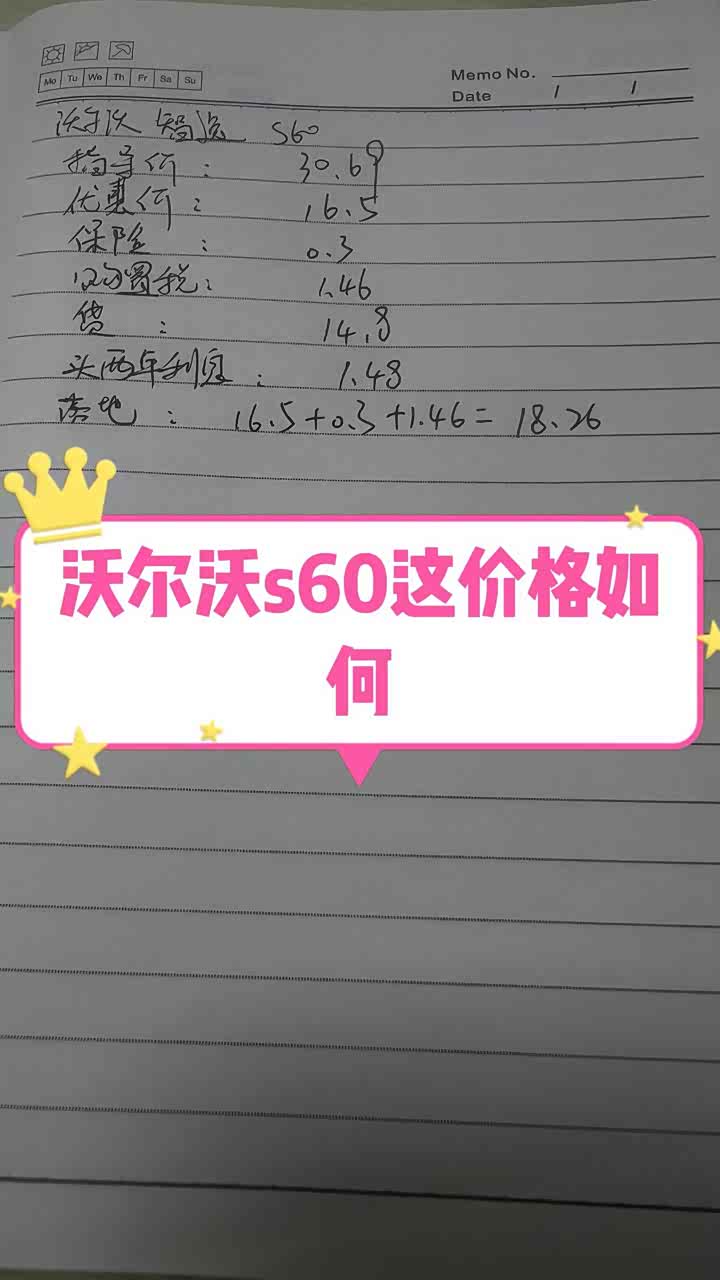 Mo Tu We Th Fr Sa Su
Memo No.
Date / /
沃尔沃 智远 S60
指导价： 30.69
优惠价： 16.5
保险： 0.3
购置税： 1.46
贷： 14.8
头两年利息： 1.48
落地： 16.5+0.3+1.46= 18.26
沃尔沃s60这价格如
何